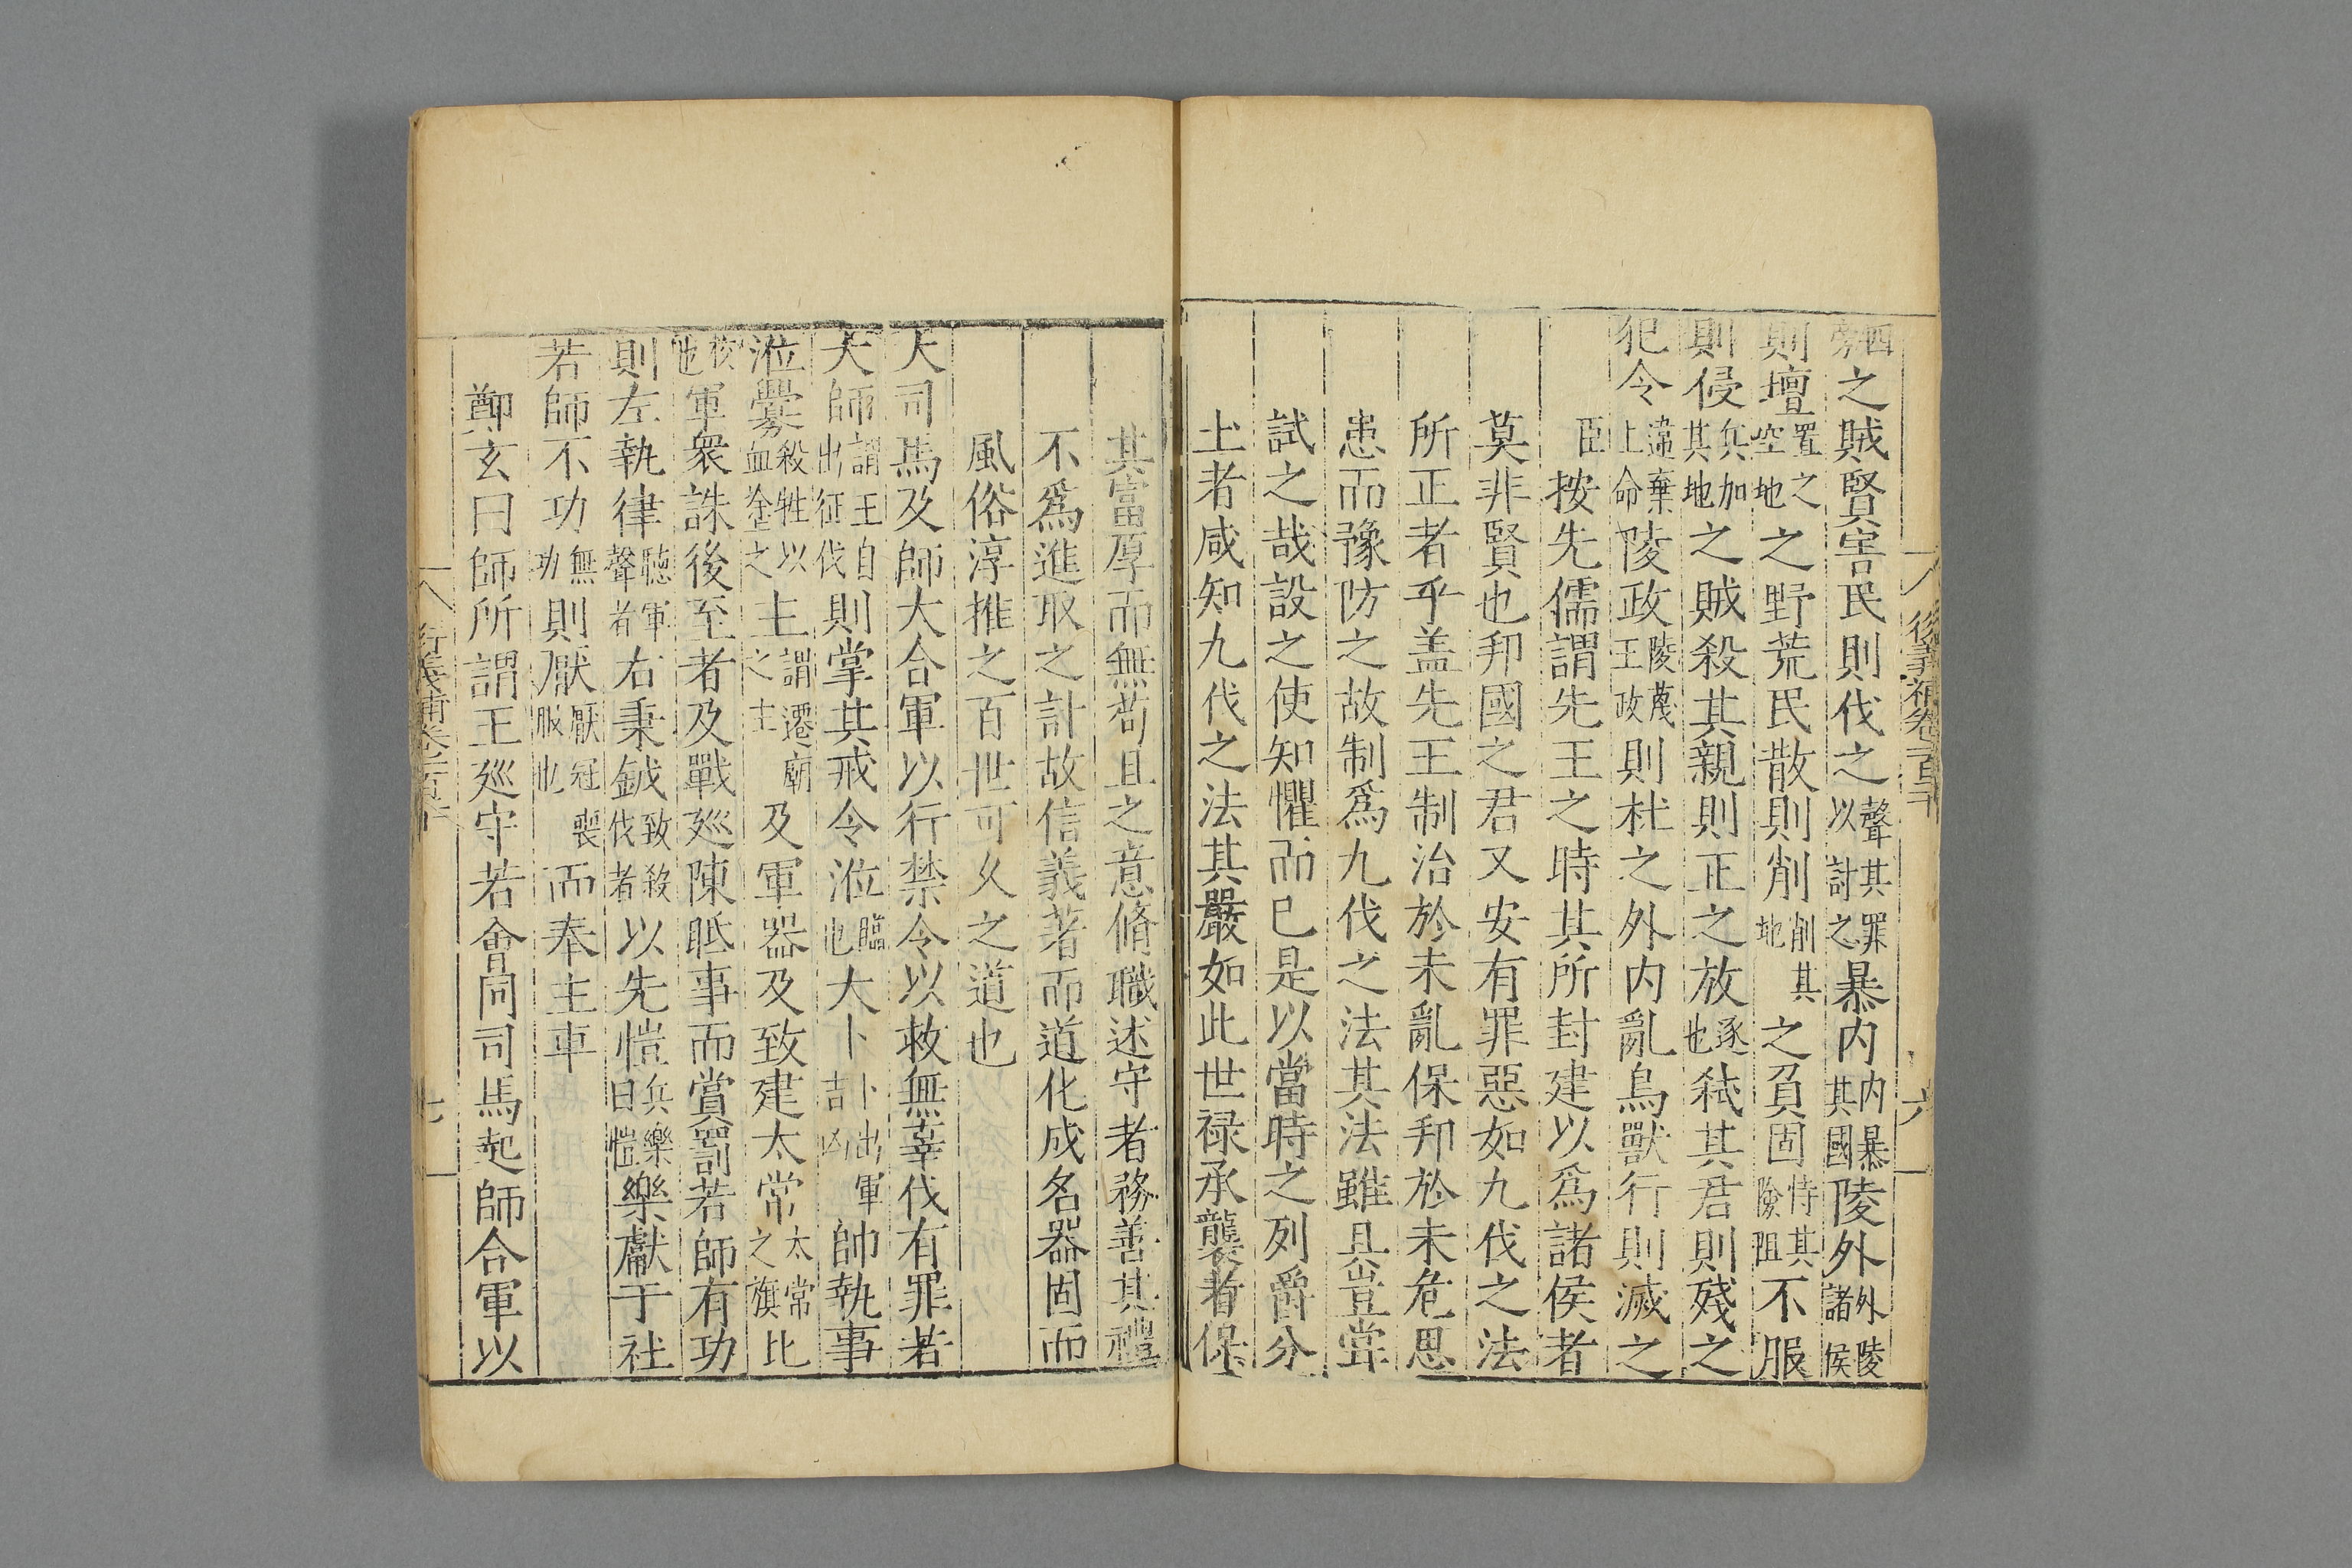 四旁之賊賢害民則伐之聲其罪以討之暴内内暴其國陵外外陵諸侯
則壇置之空地之野荒民散則削削其地之負固恃其險阻不服
則侵兵加其地之賊殺其親則正之放逐也弒其君則殘之
犯令違棄上命陵政陵蔑王政則杜之外内亂鳥獸行則滅之
臣按先儒謂先王之時其所封建以爲諸侯者
莫非賢也邦國之君又安有罪惡如九伐之法
所正者乎盖先王制治於未亂保邦於未危思
患而豫防之故制爲九伐之法其法雖具豈嘗
試之哉設之使知懼而已是以當時之列爵分
土者咸知九伐之法其嚴如此世禄承襲者保
其富厚而無苟且之意脩職述守者務善其禮
不爲進取之計故信義著而道化成名器固而
風俗淳推之百世可久之道也
大司馬及師大合軍以行禁令以救無辜伐有罪若
大師謂王自出征伐則掌其戒令涖臨也大卜卜出軍吉凶帥執事
涖釁殺牲以血塗之主謂遷廟之主及軍器及致建太常太常之旗比
校也軍衆誅後至者及戰廵陳眡事而賞罰若師有功
則左執律聽軍聲者右秉鉞致殺伐者以先愷兵樂曰愷樂獻于社
若師不功無功則厭厭冠喪服也而奉主車
鄭玄曰師所謂王廵守若會同司馬起師合軍以